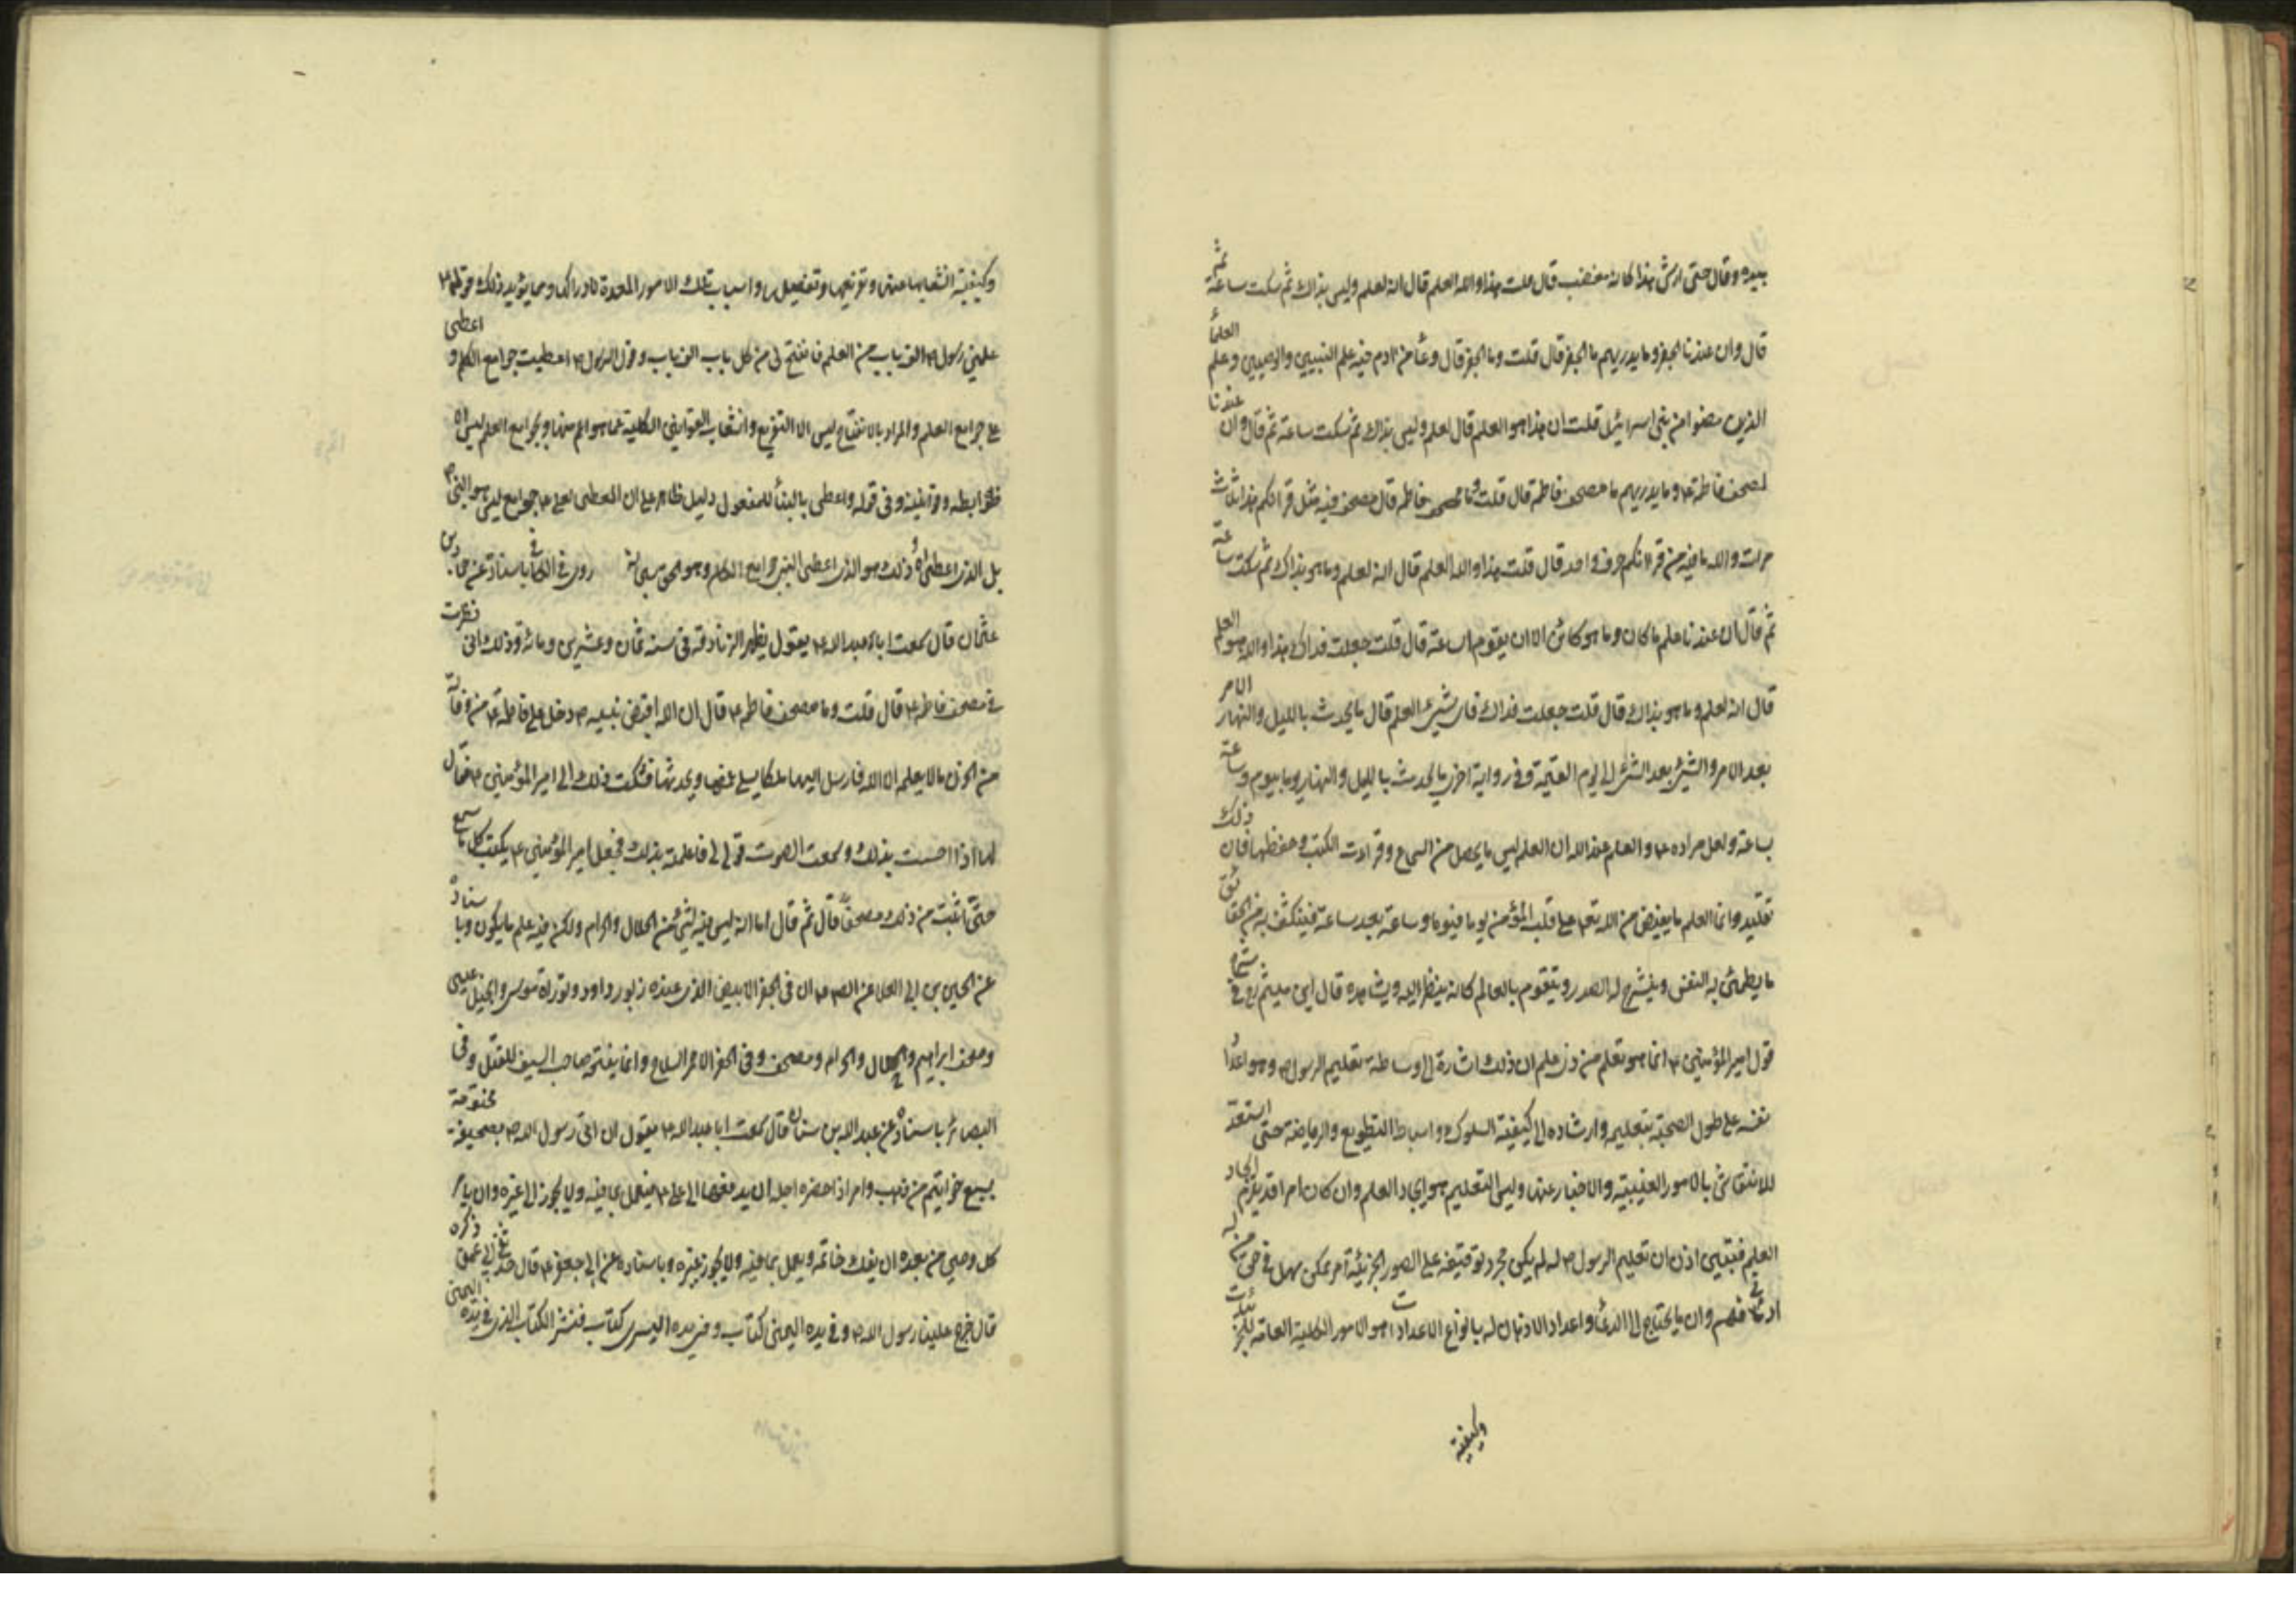 بيده وقال حتى ارش هذا كانه مغضب قال قلت هذا والله العلم قال انه لعلم وليس بذاك ثم سكت ساعة ثم
قال وان عندنا الجفر وما يدريهم ما الجفر قال قلت وما الجفر قال وعاء من ادم فيه علم النبيين والوصيين وعلم العلماء
الذين مضوا من بنى اسرائيل قلت ان هذا هو العلم قال لعلم وليس بذاك ثم سكت ساعة ثم قال وان عندنا
لمصحف فاطمة ع وما يدريهم ما مصحف فاطمة قال قلت وما مصحف فاطمة قال مصحف فيه مثل قرانكم هذا ثلاث
مرات والله ما فيه من قرانكم حرف واحد قال قلت هذا والله العلم قال انه لعلم وما هو بذاك ثم سكت ساعة
ثم قال ان عندنا علم ما كان وما هو كائن الى ان يقوم الساعة قال قلت جعلت فداك هذا والله هو العلم
قال انه لعلم وما هو بذاك قال قلت جعلت فداك فاى شئ العلم قال ما يحدث بالليل والنهار الامر
بعد الامر والشئ بعد الشئ الى يوم القيمة وفى رواية اخرى ما يحدث بالليل والنهار يوما بيوم وساعة
بساعة ولعل مراده ع والعلم عند الله ان العلم ليس ما يحصل من السماع وقراءت الكتب وحفظها فان ذلك
تقليد وانما العلم ما يفيض من الله تعه على قلب المؤمن يوما فيوما وساعة بعد ساعة فينكشف به من الحقائق
ما يطمئن به النفس وينشرح له الصدر ويتقوم بالعالم كانه ينظر اليه ويشاهده قال ابن ميثم ره فى شرح
قول امير المؤمنين ع انما هو تعلم من ذى علم ان ذلك اشارة الى وساطة تعليم الرسول ص وهو اعداد
نفسه على طول الصحبة بتعليمه وارشاده الى كيفية السلوك واسباب التطويع والرياضة حتى استعد
للانتقاش بالامور الغيبية والاخبار عنها وليس التعليم هو ايجاد العلم وان كان امرا قد يلزمه ايجاد
العلم فتبين اذن ان تعليم الرسول ص له لم يكن مجرد توقيفه على الصور الجزئية امر ممكن سهل فى حق من له
ادنى فهم وان ما يحتاج الى الدعاء واعداد الاذهان له بانواع الاعدادات هو الامور الكلية العامة للجزئيات
وكيفية
وكيفية انشعابها عنها وتفريعها وتفصيلها واسباب تلك الامور المعدة لادراكها ومما يؤيد ذلك قوله ع
علمنى رسول ص الف باب من العلم فانفتح لى من كل باب الف باب وقول الرسول ص اعطيت جوامع الكلم و اعطى
على جوامع العلم والمراد بالانفتاح ليس الا التفريع وانشعاب القوانين الكلية عما هو اهم منها وبجوامع العلم ليس الا
ضوابطه وقوانينه وفى قوله واعطى بالبناء للمفعول دليل ظاهر على ان المعطى لعلى ع جوامع ليس هو النبى ص
بل الذى اعطاه ذلك هو الذى اعطى النبى جوامع الكلام وهو الحق سبحانه روى فى الكافى باسناده عن حماد بن
عثمان قال سمعت ابا عبد الله ع يقول يظهر الزنادقة فى سنه ثمان وعشرين ومائة وذلك انى نظرت
فى مصحف فاطمة ع قال قلت وما مصحف فاطمة ع قال ان الله لما قبض نبيه ص دخل على فاطمة ع من وفاته
من الحزن ما لا يعلمه الا الله فارسل اليها ملكا يسلى غمها ويحدثها فشكت ذلك الى امير المؤمنين ع فقال
لها اذا احسست بذلك وسمعت الصوت قولى لى فاعلمته بذلك فجعل امير المؤمنين ع يكتب كل ما سمع
حتى اثبت من ذلك مصحفا قال ثم قال اما انه ليس فيه شئ من الحلال والحرام ولكن فيه علم ما يكون وباسناده
عن الحسين بن ابى العلا عن الصم ع ان فى الجفر الابيض الذى عنده زبور داود وتوراة موسى وانجيل عيسى
وصحف ابراهيم والحلال والحرام ومصحف وفى الجفر الاحمر السلاح وانما يفتحه صاحب السيف للقتل وفى
البصائر باسناده عن عبد الله بن سنان قال سمعت ابا عبد الله ع يقول ان اتى رسول الله ص بصحيفة مختومة
بسبع خواتيم من ذهب وامر اذا حضره اجله ان يدفعها الى على ع فيعمل بما فيه ولا يجوز الى غيره وان يامر
كل وصى من بعده ان يفك خاتمه ويعمل بما فيه ولا يجوز غيره وباسناده عن ابى جعفر ع قال حدثنى ابى عمن ذكره
قال خرج علينا رسول الله ص وفى يده اليمنى كتاب وفى يده اليسرى كتاب فنشر الكتاب الذى فى يده اليمنى